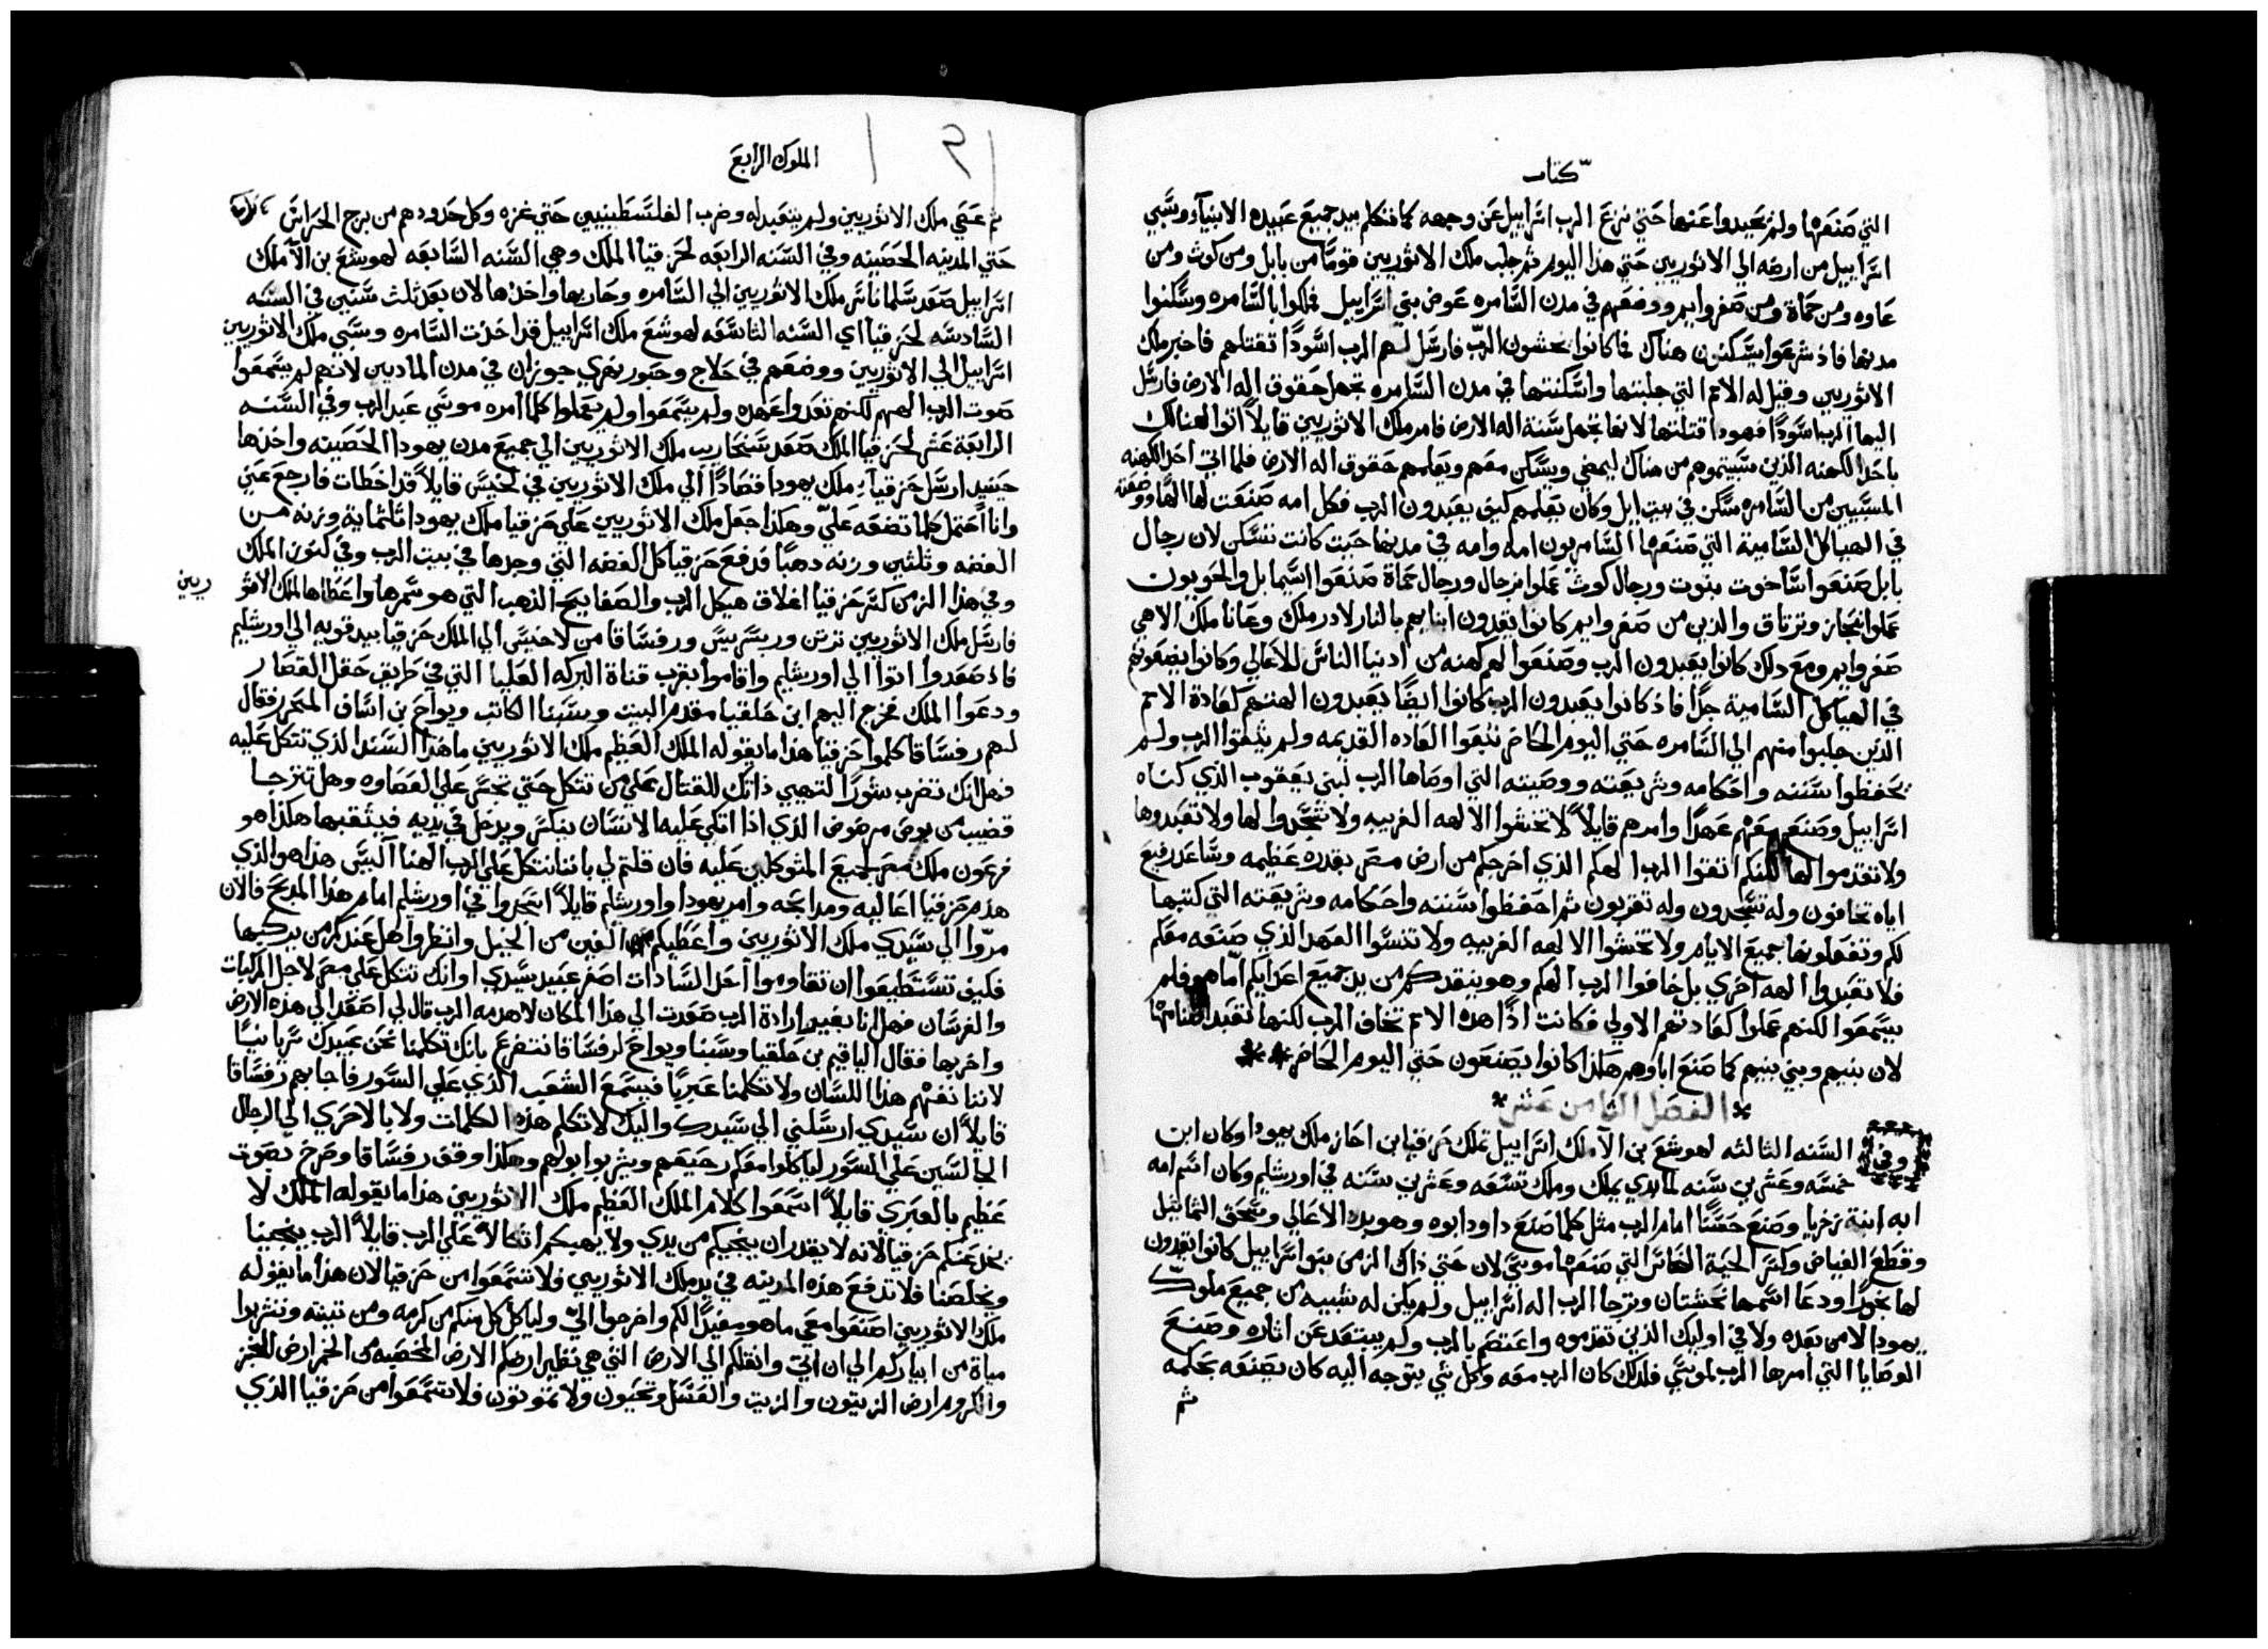 كتاب
التي صنعها ولم يحيدوا عنها حتي نزع الرب اسراييل عن وجهه كما تكلم بيد جميع عبيده الانبياء وسبي
اسراييل من ارضه الي الاثوريين حتي هذا اليوم ثم جلب ملك الاثوريين قوما من بابل ومن كوث ومن
عاوه ومن حماة ومن صفروايم ووضعهم في مدن السامره عوض بني اسراييل فملكوا بالسامره وسكنوا
مدنها فاذ شرعوا يسكنون هناك فما كانوا يخشون الرب فارسل لهم الرب اسودا تقتلهم فاخبر ملك
الاثوريين وقيل له الامم التي جلبتها واسكنتها في مدن السامره تجهل حقوق اله الارض فارسل
اليها الرب اسودا فهودا قتلتها لانها تجهل سنة اله الارض فامر ملك الاثوريين قايلا اتوا لهنالك
باحد الكهنه الذين سبيتموهم من هناك ليمضي ويسكن معهم ويعلمهم حقوق اله الارض فلما اتي احد الكهنه
المسبيين من السامره سكن في بيت ايل وكان يعلمهم كيف يعبدون الرب فكل امه صنعت لها الها ووضعته
في الهياكل السامية التي صنعها السامريون امه وامه في مدنها حيث كانت تسكن لان رجال
بابل صنعوا ساخوت بنوت ورجال كوث عملوا نرجال ورجال حماة صنعوا اسيما بل والحويون
عملوا نبحاز وترتاق والذين من صفروايم كانوا يقدون ابنايهم بالنار لادر ملك وعانا ملك الاهي
صفروايم ومع ذلك كانوا يعبدون الرب وصنعوا لهم كهنه من ادنيا الناس للاعالي وكانوا يضعونهم
في الهياكل السامية جدا فاذ كانوا يعبدون الرب كانوا ايضا يعبدون الهتهم كعادة الامم
الذين جلبوا منهم الي السامره حتي اليوم الحاضر تبعوا العاده القديمه ولم يتقوا الرب ولم
يحفظوا سننه واحكامه وشريعته ووصيته التي اوصاها الرب لبني يعقوب الذي كناه
اسراييل وصنع معهم عهدا وامرهم قايلا لا تخشوا الالهه الغريبه ولا تسجدوا لها ولا تعبدوها
ولا تقدموا لها لكنكم اتقوا الرب الهكم الذي اخرجكم من ارض مصر بقدره عظيمه وساعد رفيع
اياه تخافون وله تسجدون وله تقربون ثم احفظوا سننه واحكامه وشريعته التي كتبها
لكم وتفعلونها جميع الايام ولا تخشوا الالهه الغريبه ولا تنسوا العهد الذي صنعه معكم
فلا تعبدوا الهه اخري بل خافوا الرب الهكم وهو ينقذكم من يد جميع اعدايكم اما هم فلم
يسمعوا لكنهم عملوا كعادتهم الاولي فكانت اذا هذه الامم تخاف الرب لكنها تعبد اصنامها
لان بنيهم وبني بنيهم كما صنع اباوهم هكذا كانوا يصنعون حتي اليوم الحاضر
الفصل الثامن عشر
وفي السنه الثالثه لهوشع بن الا ملك اسراييل تملك حزقيا بن احاز ملك يهودا وكان ابن
خمسه وعشرين سنه لما بدي يملك وملك تسعه وعشرين سنه في اورشليم وكان اسم امه
ابه ابنة زخريا وصنع حسنا امام الرب مثل كلما صنع داود ابوه وهو بدد الاعالي وسحق التماثيل
وقطع الغياض وكسر الحية النحاس التي صنعها موسي لان حتي ذاك الزمن بنو اسراييل كانوا يقدون
لها بخورا ودعا اسمها نحشتان وترجا الرب اله اسراييل ولم يكن له شبيه من جميع ملوك
يهودا لا من بعده ولا في اوليك الذين تقدموه واعتصم بالرب ولم يبتعد عن اثاره وصنع
الوصايا التي امرها الرب لموسي فلذلك كان الرب معه وكل شي يتوجه اليه كان يصنعه بحكمه
ثم
الملوك الرابع
ثم عصي ملك الاثوريين ولم يتعبد له وضرب الفلسطينيين حتي غزه وكل حدودهم من برج الحراس
حتي المدينه الحصينه وفي السنه الرابعه لحزقيا الملك وهي السنه السابعه لهوشع بن الا ملك
اسراييل صعد سلماناسر ملك الاثوريين الي السامره وحاربها واخذها لان بعد ثلث سنين في السنه
السادسه لحزقيا اي السنه التاسعه لهوشع ملك اسراييل قد اخذت السامره وسبي ملك الاثوريين
اسراييل الي الاثوريين ووضعهم في حلاج وحبور نهري جوزان في مدن الماديين لانهم لم يسمعوا
صوت الرب الههم لكنهم تعدوا عهده ولم يسمعوا ولم يعملوا كلما امره موسي عبد الرب وفي السنه
الرابعة عشر لحزقيا الملك صعد سنحاريب ملك الاثوريين الي جميع مدن يهودا الحصينه واخذها
حينيذ ارسل حزقيا ملك يهودا قصادا الي ملك الاثوريين في لخيس قايلا قد اخطات فارجع عني
وانا احتمل كلما تضعه علي وهكذا جعل ملك الاثوريين علي حزقيا ملك يهودا ثلثماية وزنه من
الفضه وثلثين وزنه ذهبا فدفع حزقيا كل الفضه التي وجدها في بيت الرب وفي كنوز الملك
وفي هذا الزمن كسر حزقيا اغلاق هيكل الرب والصفايح الذهب التي هو سمرها واعطاها لملك الاثو
ريين
فارسل ملك الاثوريين ترتن وربسريس ورفساقا من لاخيس الي الملك حزقيا بيد قويه الي اورشليم
فاذ صعدوا اتوا الي اورشليم واقاموا بقرب قناة البركه العليا التي في طريق حقل القصار
ودعوا الملك فخرج اليهم ابن حلقيا مقدم البيت وسبنا الكاتب ويواح بن اساف المحرر فقال
لهم رفساقا كلموا حزقيا هذا ما يقوله الملك العظيم ملك الاثوريين ما هذا السند الذي تتكل عليه
فهل انك تضرب شورا لتهيي ذاتك للقتال علي من تتكل حتي تجسر علي العصاوه وهل تترجا
قضيب من بوص مرضوض الذي اذا اتكي عليه الانسان ينكسر ويدخل في يديه فيثقبها هكذا هو
فرعون ملك مصر لجميع المتوكلين عليه فان قلتم لي باننا نتكل علي الرب الهنا اليس هذا هو الذي
هدم حزقيا اعاليه ومذابحه وامر يهودا واورشليم قايلا اسجدوا في اورشليم امام هذا المذبح فالان
مروا الي سيدي ملك الاثوريين واعطيكم الفين من الخيل وانظروا هل عندكم من يركبها
فكيف تستطيعوا ان تقاوموا احد السادات اصغر عبيد سيدي او انك تتكل علي مصر لاجل المركبات
والفرسان فهل انا بغير ارادة الرب صعدت الي هذا المكان لاهدمه الرب قال لي اصعد الي هذه الارض
واخربها فقال الياقيم بن حلقيا وسبنا ويواح لرفساقا نتضرع بانك تكلمنا نحن عبيدك سريانيا
لاننا نفهم هذا اللسان ولا تكلمنا عبريا فيسمع الشعب الذي علي السور فاجابهم رفساقا
قايلا ان سيدي ارسلني الي سيدك واليك لاتكلم هذه الكلمات ولا بالاحري الي الرجال
الجالسين علي السور لياكلوا معكم رجيعهم ويشربوا بولهم وهكذا وقف رفساقا وصرخ بصوت
عظيم بالعبري قايلا اسمعوا كلام الملك العظيم ملك الاثوريين هذا ما يقوله الملك لا
يخدعنكم حزقيا لانه لا يقدر ان ينجيكم من يدي ولا يهبكم اتكالا علي الرب قايلا الرب ينجينا
ويخلصنا فلا تدفع هذه المدينه في يد ملك الاثوريين ولا تسمعوا من حزقيا لان هذا ما يقوله
ملك الاثوريين اصنعوا معي ما هو مفيدا لكم واخرجوا الي ولياكل كل منكم من كرمه ومن تينته وتشربوا
مياة من ابياركم الي ان اتي وانقلكم الي الارض التي هي نظير ارضكم الارض المخصبه من الخمر ارض الخبز
والكروم ارض الزيتون والزيت والعسل وتحيون ولا تموتون فلا تسمعوا من حزقيا الذي